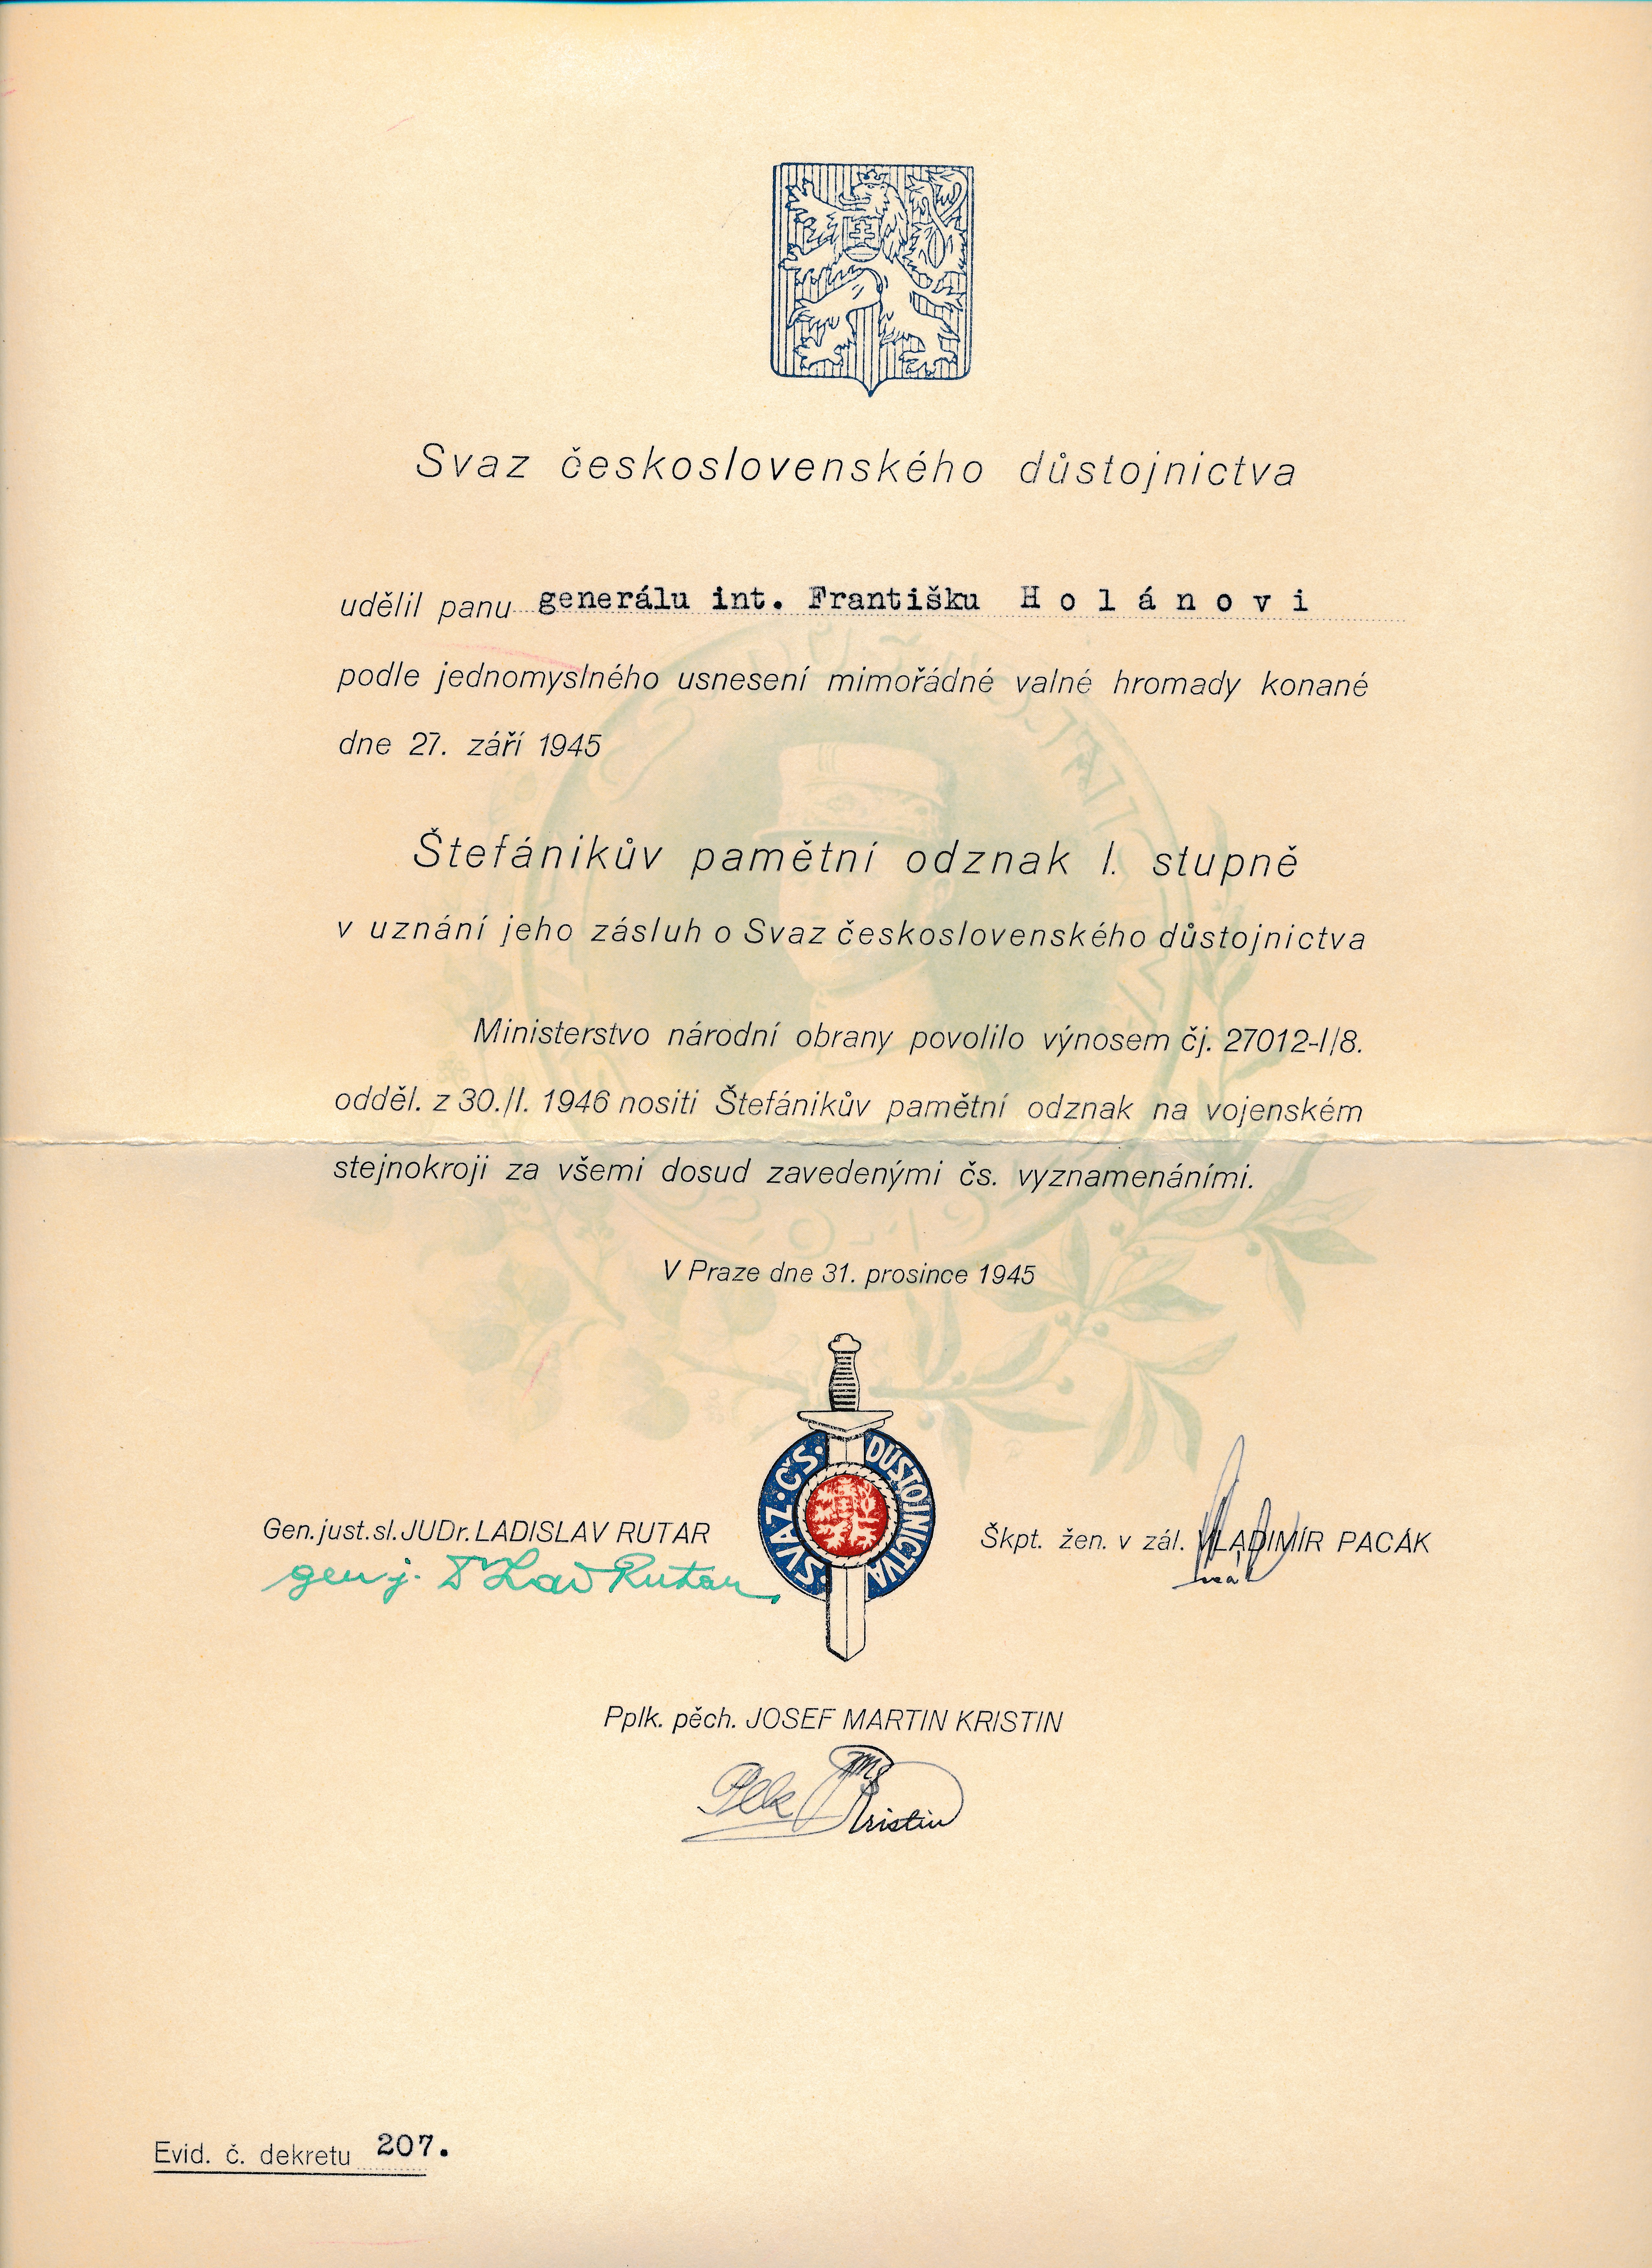 Svaz československého důstojnictva
udělil panu generálu int. Františku H o l á n o v i
podle jednomyslného usnesení mimořádné valné hromady konané
dne 27. září 1945
Štefánikův pamětní odznak I. stupně
v uznání jeho zásluh o Svaz československého důstojnictva
Ministerstvo národní obrany povolilo výnosem čj. 27012-I/8.
odděl. z 30./I. 1946 nositi Štefánikův pamětní odznak na vojenském
stejnokroji za všemi dosud zavedenými čs. vyznamenáními.
V Praze dne 31. prosince 1945
· SVAZ · ČS · DŮSTOJNICTVA
Gen. just. sl. JUDr. LADISLAV RUTAR
gen j. Dr Lad Rutar
Škpt. žen. v zál. VLADIMÍR PACÁK
Pplk. pěch. JOSEF MARTIN KRISTIN
Plk Kristin
Evid. č. dekretu 207.